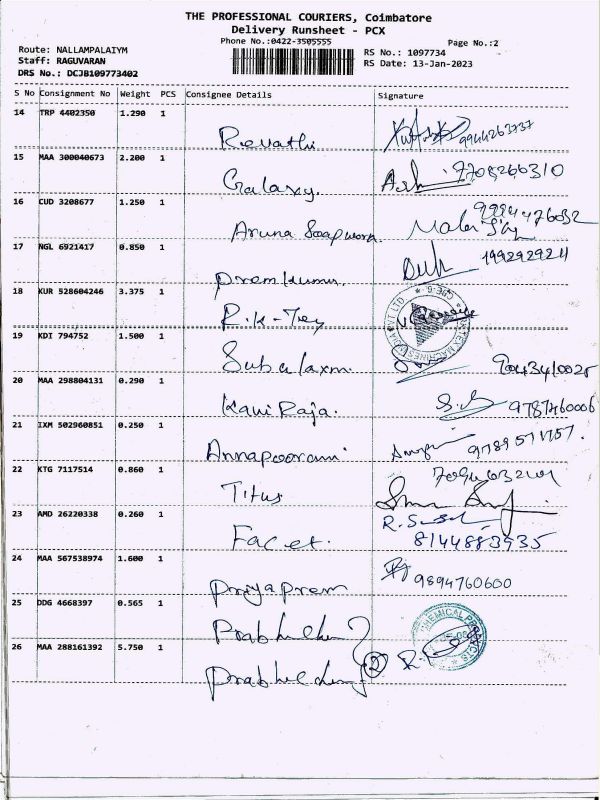 THE PROFESSIONAL COURIERS, Coimbatore
Delivery Runsheet - PCX
Phone No.:0422-3505555
Page No.:2
Route: NALLAMPALAIYM
Staff: RAGUVARAN
DRS No.: DCJB109773402
RS No.: 1097734
RS Date: 13-Jan-2023
S No Consignment No Weight PCS Consignee Details Signature
14 TRP 4402350 1.290 1
Revathi 9944263737
15 MAA 300040673 2.200 1
Galaxy. 7708266310
16 CUD 3208677 1.250 1
Aruna Soap work.
17 NGL 6921417 0.850 1
Premkumar
18 KUR 528604246 3.375 1
R.K-Tex
19 KDI 794752 1.500 1
Subalaxmi 9043410025
20 MAA 298804131 0.290 1
Kavi Raja. 9787460006
21 IXM 502960851 0.250 1
Annapoorani
22 KTG 7117514 0.860 1
Titus
23 AMD 26220338 0.260 1
Facet. 8144883935
24 MAA 567538974 1.600 1
Priyaprem 9894760600
25 DDG 4668397 0.565 1
CHEMICAL
26 MAA 288161392 5.750 1
2